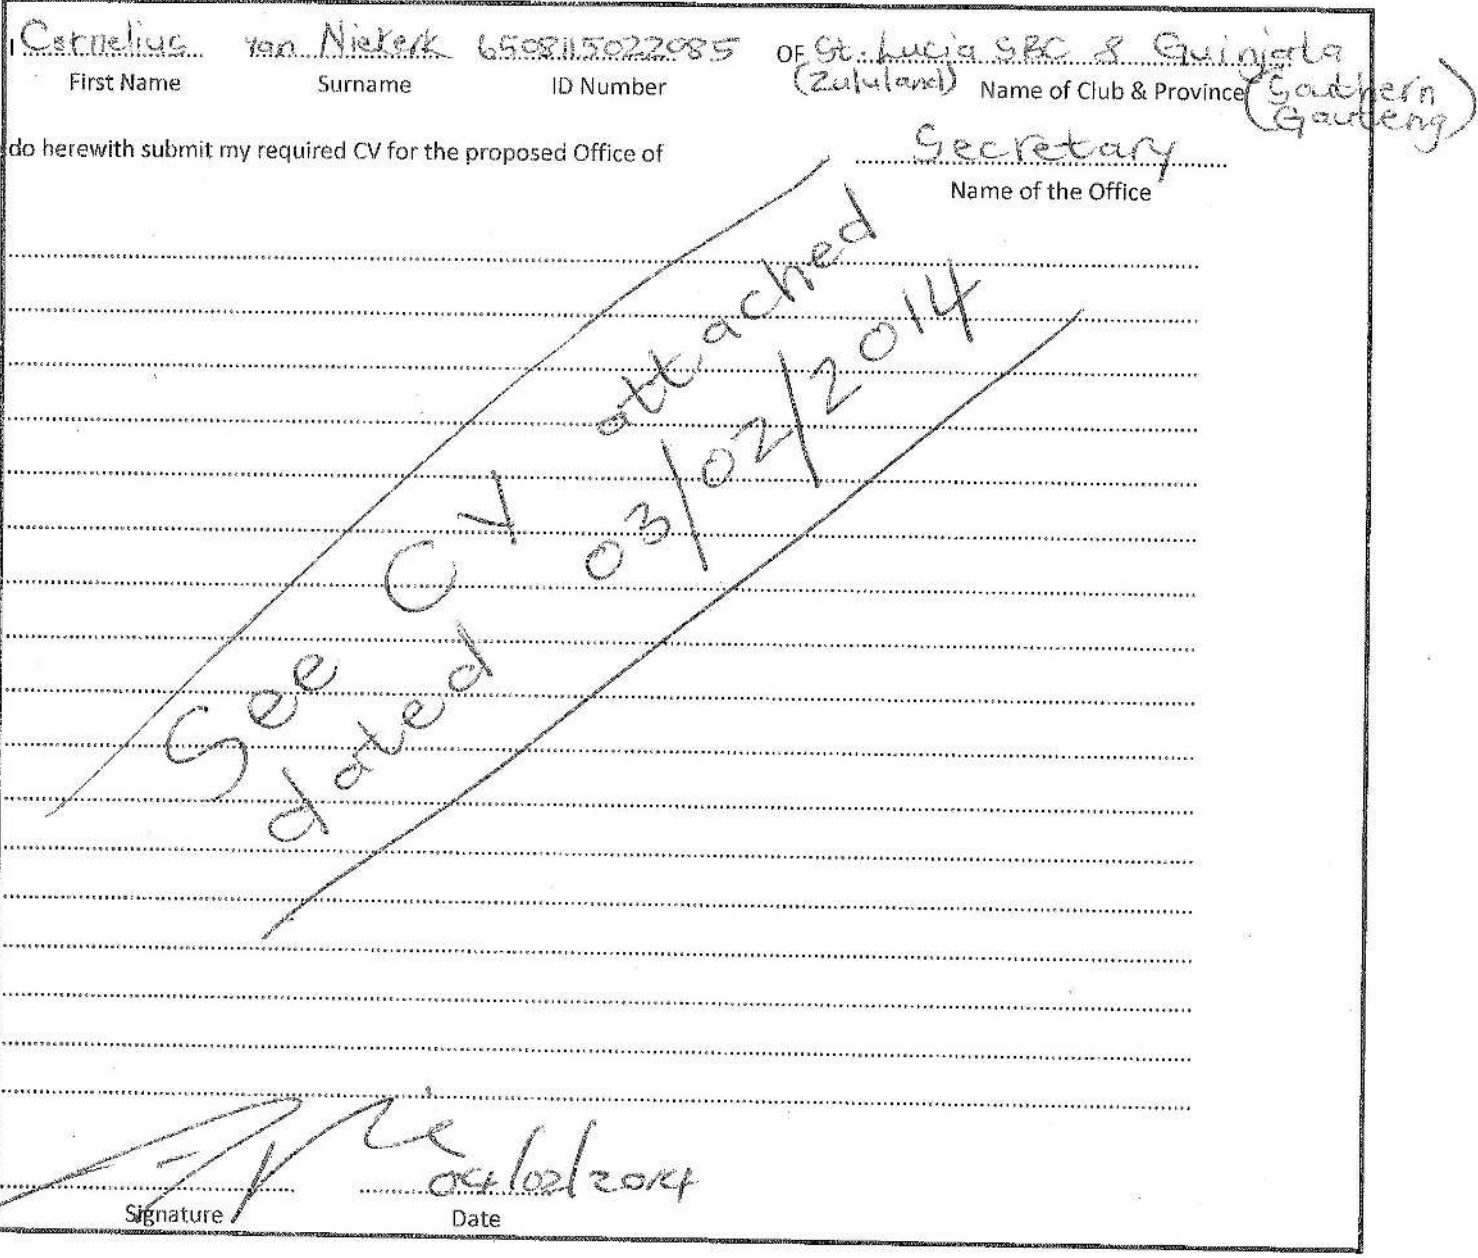 I Cornelius van Niekerk 6508115022085 OF St. Lucia SBC & Guinjata
First Name Surname ID Number (Zululand) Name of Club & Province (Southern
Gauteng)
do herewith submit my required CV for the proposed Office of Secretary
Name of the Office
See CV attached
dated 03/02/2014
04/02/2014
Signature Date